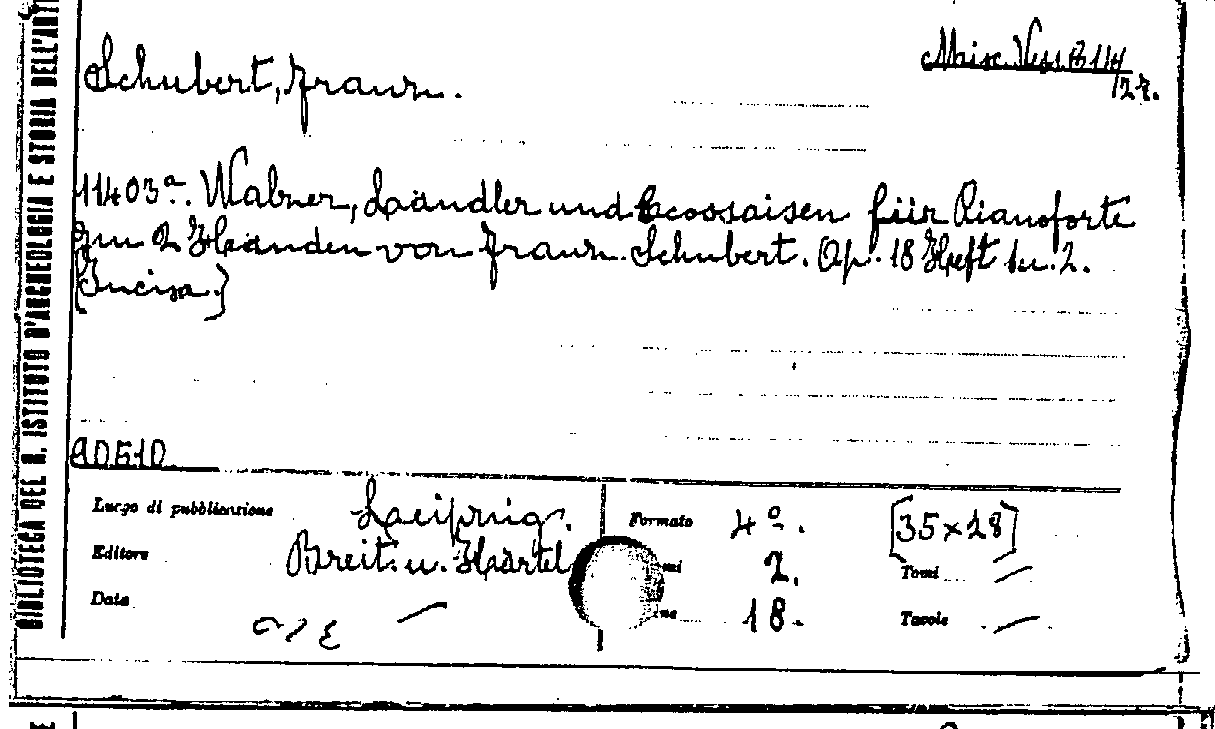 BIBLIOTECA DEL R. ISTITUTO D'ARCHEOLOGIA E STORIA DELL'ARTE
Schubert, Franz.
Misc. Vess. B 114
/28.
11403ª. Walzer, Ländler und Ecossaisen für Pianoforte
zu 2 Händen von Franz Schubert. Op. 18 Heft 1 u. 2.
[Incisa.]
Luogo di pubblicazione Leipzig.
Formato 4º. [35x28]
Editore Breit. u. Härtel
2.
Tomi —
Data —
18.
Tavole —